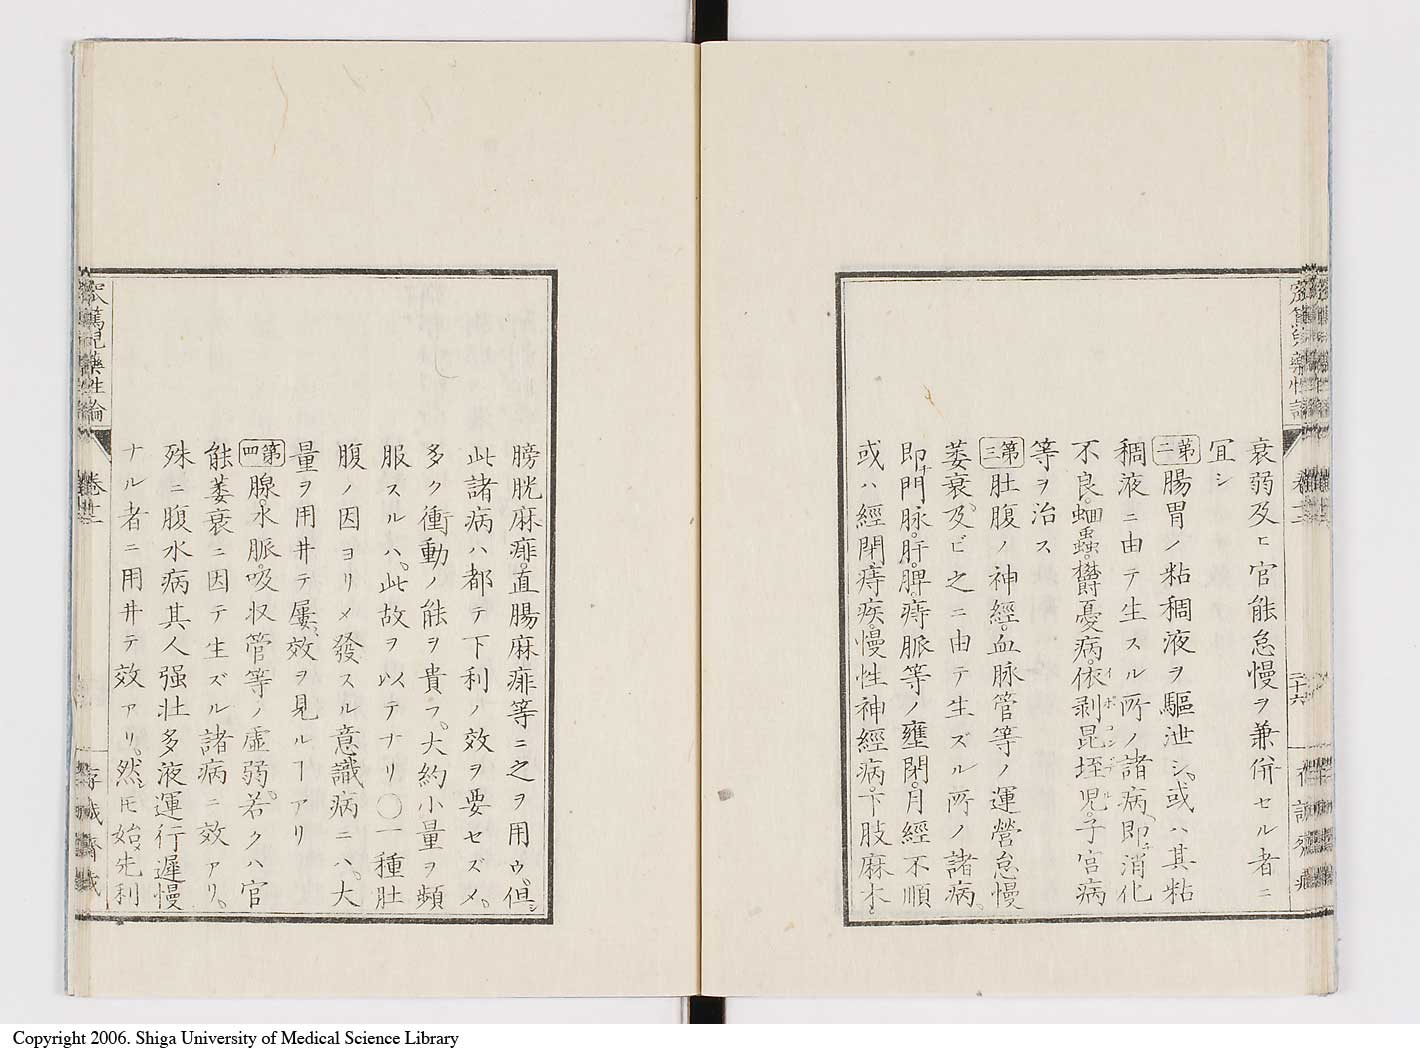 衰弱及ヒ官能怠慢ヲ兼併セル者ニ
宜シ
第二 腸胃ノ粘稠液ヲ驅泄シ。或ハ其粘
稠液ニ由テ生スル所ノ諸病、即チ消化
不良。蛔蟲。欝憂病。依剥昆垤児。子宮病
イポコンデル
等ヲ治ス
第三 肚腹ノ神經。血脉管等ノ運營怠慢
萎衰。及ビ之ニ由テ生ズル所ノ諸病。
即チ門脉。肝。脾。痔脈等ノ壅閉。月經不順
或ハ經閉痔疾。慢性神經病。下肢麻木。
膀胱麻痱。直腸麻痱等ニ之ヲ用ウ。但シ
此諸病ハ都テ下利ノ效ヲ要セズメ。
多ク衝動ノ能ヲ貴フ。大約小量ヲ頻
服スルハ。此故ヲ以テナリ〇一種肚
腹ノ因ヨリメ發スル意識病ニハ。大
量ヲ用井テ屢〻效ヲ見ルヿアリ
第四 腺。水脈。吸収管等ノ虚弱。若クハ官
能萎衰ニ因テ生ズル諸病ニ效アリ。
殊ニ腹水病其人强壮多液運行遲慢
ナル者ニ用井テ效アリ。然𪜈始メ先利
藥性論
卷十二
二十六